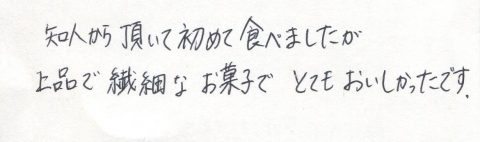 知人から頂いて初めて食べましたが
上品で繊細なお菓子でとてもおいしかったです.